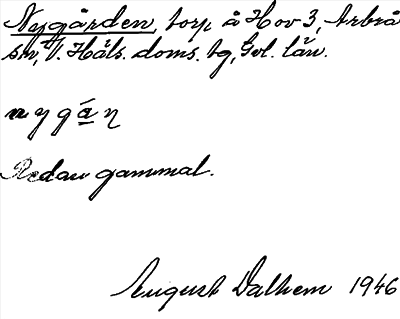 Nygården, torp å Hov 3, Arbrå
sn, V. Häls. doms. tg, Gvl. län.
nygáɳ
Redan gammal.
August Dalhem 1946